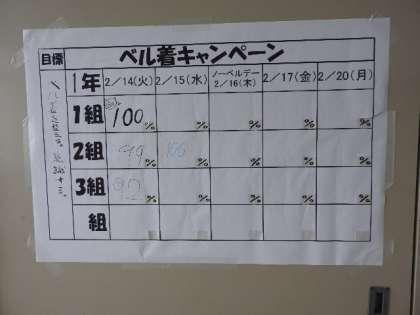 目標
ベル着キャンペーン
1年 2/14(火) 2/15(水) ノーベルデー 2/16(木) 2/17(金) 2/20(月)
1組 100 % % % % %
2組 % % % % %
3組 % % % % %
組 % % % % %